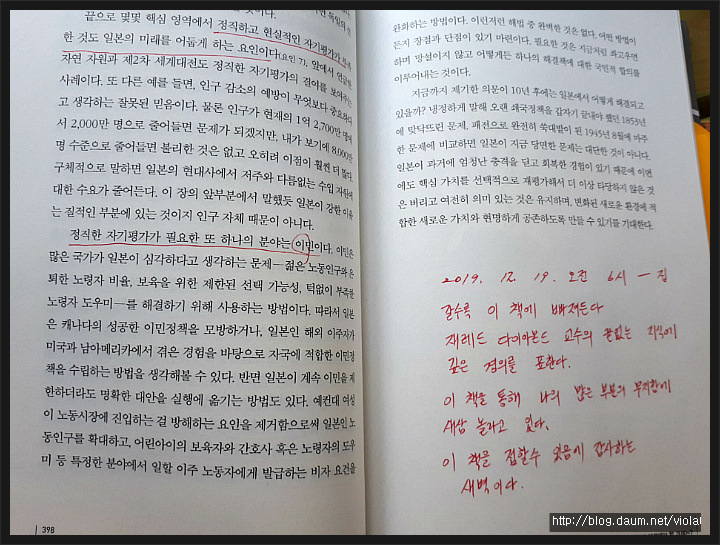 끝으로 몇몇 핵심 영역에서 정직하고 현실적인 자기평가가
한 것도 일본의 미래를 어둡게 하는 요인이다(요인 7). 앞에서
자연 자원과 제2차 세계대전도 정직한 자기평가의 결여를 보여주는
사례이다. 또 다른 예를 들면, 인구 감소의 예방이 무엇보다 중요하다
고 생각하는 잘못된 믿음이다. 물론 인구가 현재의 1억 2,700만 명에
서 2,000만 명으로 줄어들면 문제가 되겠지만, 내가 보기에 8,000만
명 수준으로 줄어들면 불리한 것은 없고 오히려 이점이 훨씬 더 많다.
구체적으로 말하면 일본의 현대사에서 저주와 다름없는 수입 자원에
대한 수요가 줄어든다. 이 장의 앞부분에서 말했듯 일본이 강한 이유
는 질적인 부분에 있는 것이지 인구 자체 때문이 아니다.
정직한 자기평가가 필요한 또 하나의 분야는 이민이다. 이민은
많은 국가가 일본이 심각하다고 생각하는 문제—젊은 노동인구와 은
퇴한 노령자 비율, 보육을 위한 제한된 선택 가능성, 턱없이 부족한
노령자 도우미—를 해결하기 위해 사용하는 방법이다. 따라서 일본
은 캐나다의 성공한 이민정책을 모방하거나, 일본인 해외 이주자가
미국과 남아메리카에서 겪은 경험을 바탕으로 자국에 적합한 이민정
책을 수립하는 방법을 생각해볼 수 있다. 반면 일본이 계속 이민을 제
한하더라도 명확한 대안을 실행에 옮기는 방법도 있다. 예컨대 여성
이 노동시장에 진입하는 걸 방해하는 요인을 제거함으로써 일본인 노
동인구를 확대하고, 어린아이의 보육자와 간호사 혹은 노령자의 도우
미 등 특정한 분야에서 일할 이주 노동자에게 발급하는 비자 요건을
398
완화하는 방법이다. 이런저런 해법 중 완벽한 것은 없다. 어떤 방법이
든지 장점과 단점이 있기 마련이다. 필요한 것은 지금처럼 좌고우면
하며 망설이지 않고 어떻게든 하나의 해결책에 대한 국민적 합의를
이루어내는 것이다.
지금까지 제기한 의문이 10년 후에는 일본에서 어떻게 해결되고
있을까? 냉정하게 말해 오랜 쇄국정책을 갑자기 끝내야 했던 1853년
에 맞닥뜨린 문제, 패전으로 완전히 쑥대밭이 된 1945년 8월에 마주
한 문제에 비교하면 일본이 지금 당면한 문제는 대단한 것이 아니다.
일본이 과거에 엄청난 충격을 딛고 회복한 경험이 있기 때문에 이번
에도 핵심 가치를 선택적으로 재평가해서 더 이상 타당하지 않은 것
은 버리고 여전히 의미 있는 것은 유지하며, 변화된 새로운 환경에 적
합한 새로운 가치와 현명하게 공존하도록 만들 수 있기를 기대한다.
2019. 12. 19. 오전 6시 — 집
갈수록 이 책에 빠져든다
재레드 다이아몬드 교수의 끝없는 지식에
깊은 경의를 표한다.
이 책을 통해 나의 많은 부분의 무지함에
새삼 놀라고 있다.
이 책을 접할수 있음에 감사하는
새벽이다.
http://blog.daum.net/violal